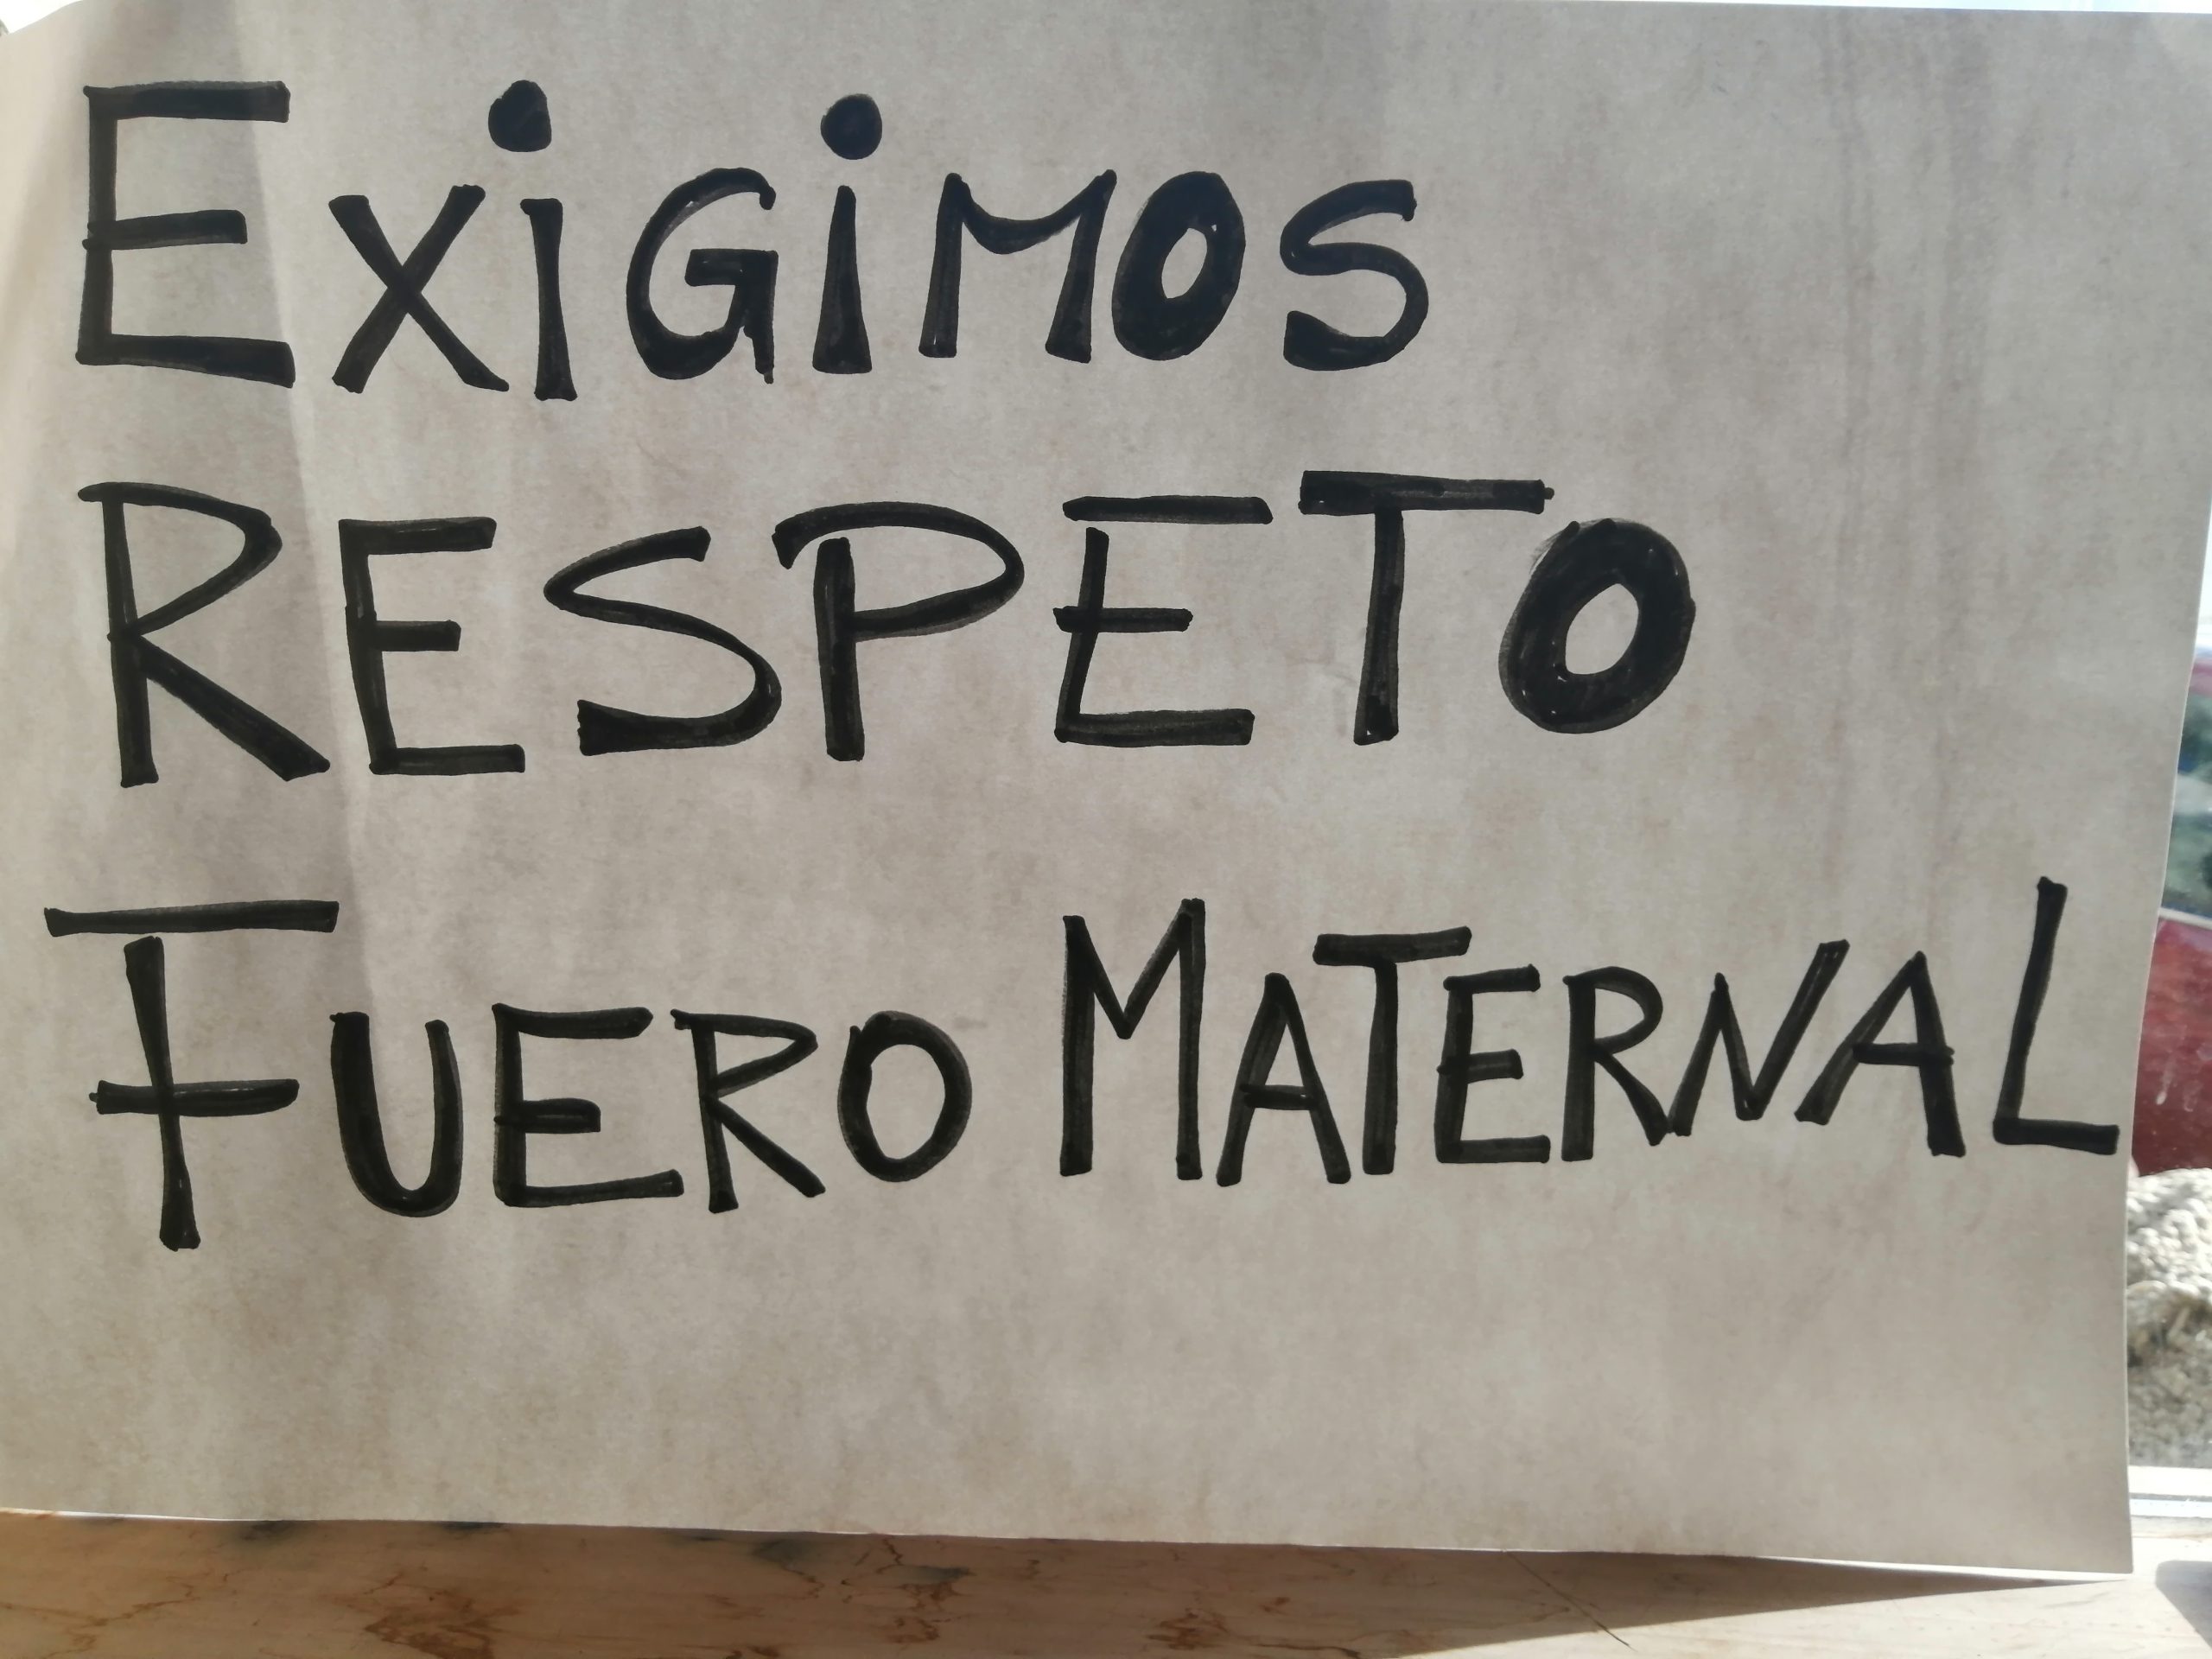 EXiGiMOS
RESPETO
FUERO MATERNAL